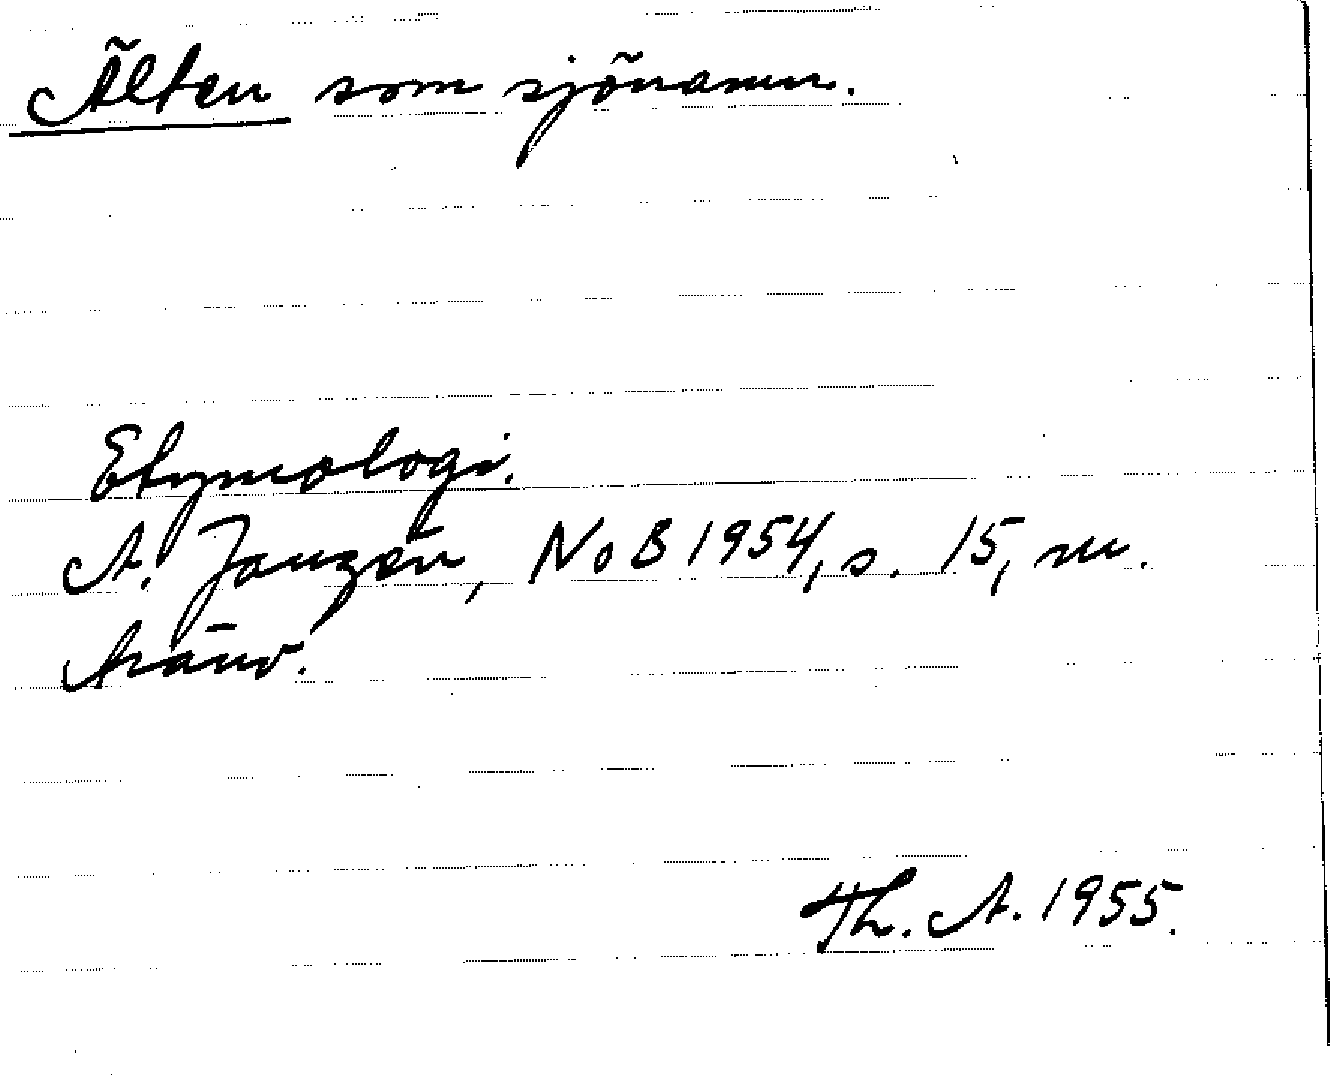 Älten som sjönamn.
Etymologi.
A. Janzén, NoB 1954, s. 15, m.
hänv.
Th. A. 1955.